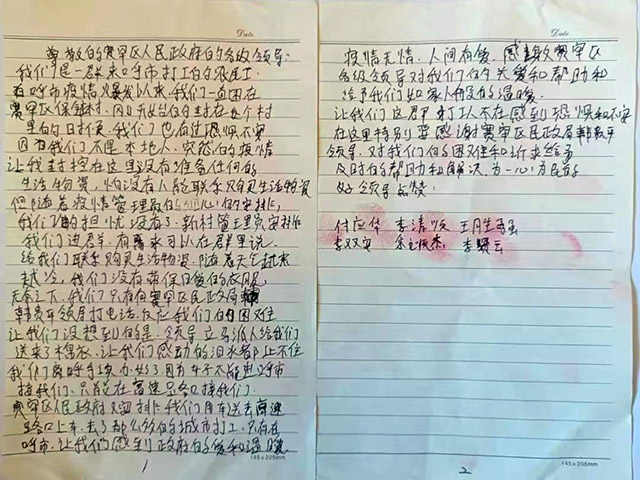 Date
尊敬的赛罕区人民政府的各级领导:
我们是一群来呼市打工的农民工.
在呼市疫情爆发以来,我们一直困在
赛罕区保全村.因为无数的封在这个村
里面的时候,我们也有过恐慌不安
因为我们不是本地人.突然的疫情
让我封控在这里没有准备任何的
生活物资,怕没有人能联系购买生活物资
但随着疫情管理员的细心的安排,
我们的担忧没有了.新村管理员安排
我们进群.有需求可以在群里说
给我们联系购买生活物资.随着天气越来
越冷,我们没有带保日暖的衣服,
无奈之下,我们只有向赛罕区民政局
韩贵平领导打电话反应我们的困难
让我们没想到的是.领导立马派人给我们
送来了棉衣.让我们感动的泪水都止不住
我们离呼手续办好了因为车子不能进呼市
接我们.只能在高速路口接我们.
赛罕区人民政府又安排我们用车送去高速
路口上车.去了那么多的城市打工.只有在
呼市.让我们感到政府的爱和温暖
1
145×205mm
Date
疫情无情.人间有爱.感谢赛罕区
各级领导对我们的关爱和帮助和
给予我们如家人般的温暖.
让我们这群打工人不在感到恐慌和不安
在这里特别要感谢赛罕区民政局韩贵平
领导.对我们的困难和诉求给予
及时的帮助和解决.为一心为民的
好领导点赞:
付应华 李清 王胜强
李双安 余杰 李云
2
145×205mm